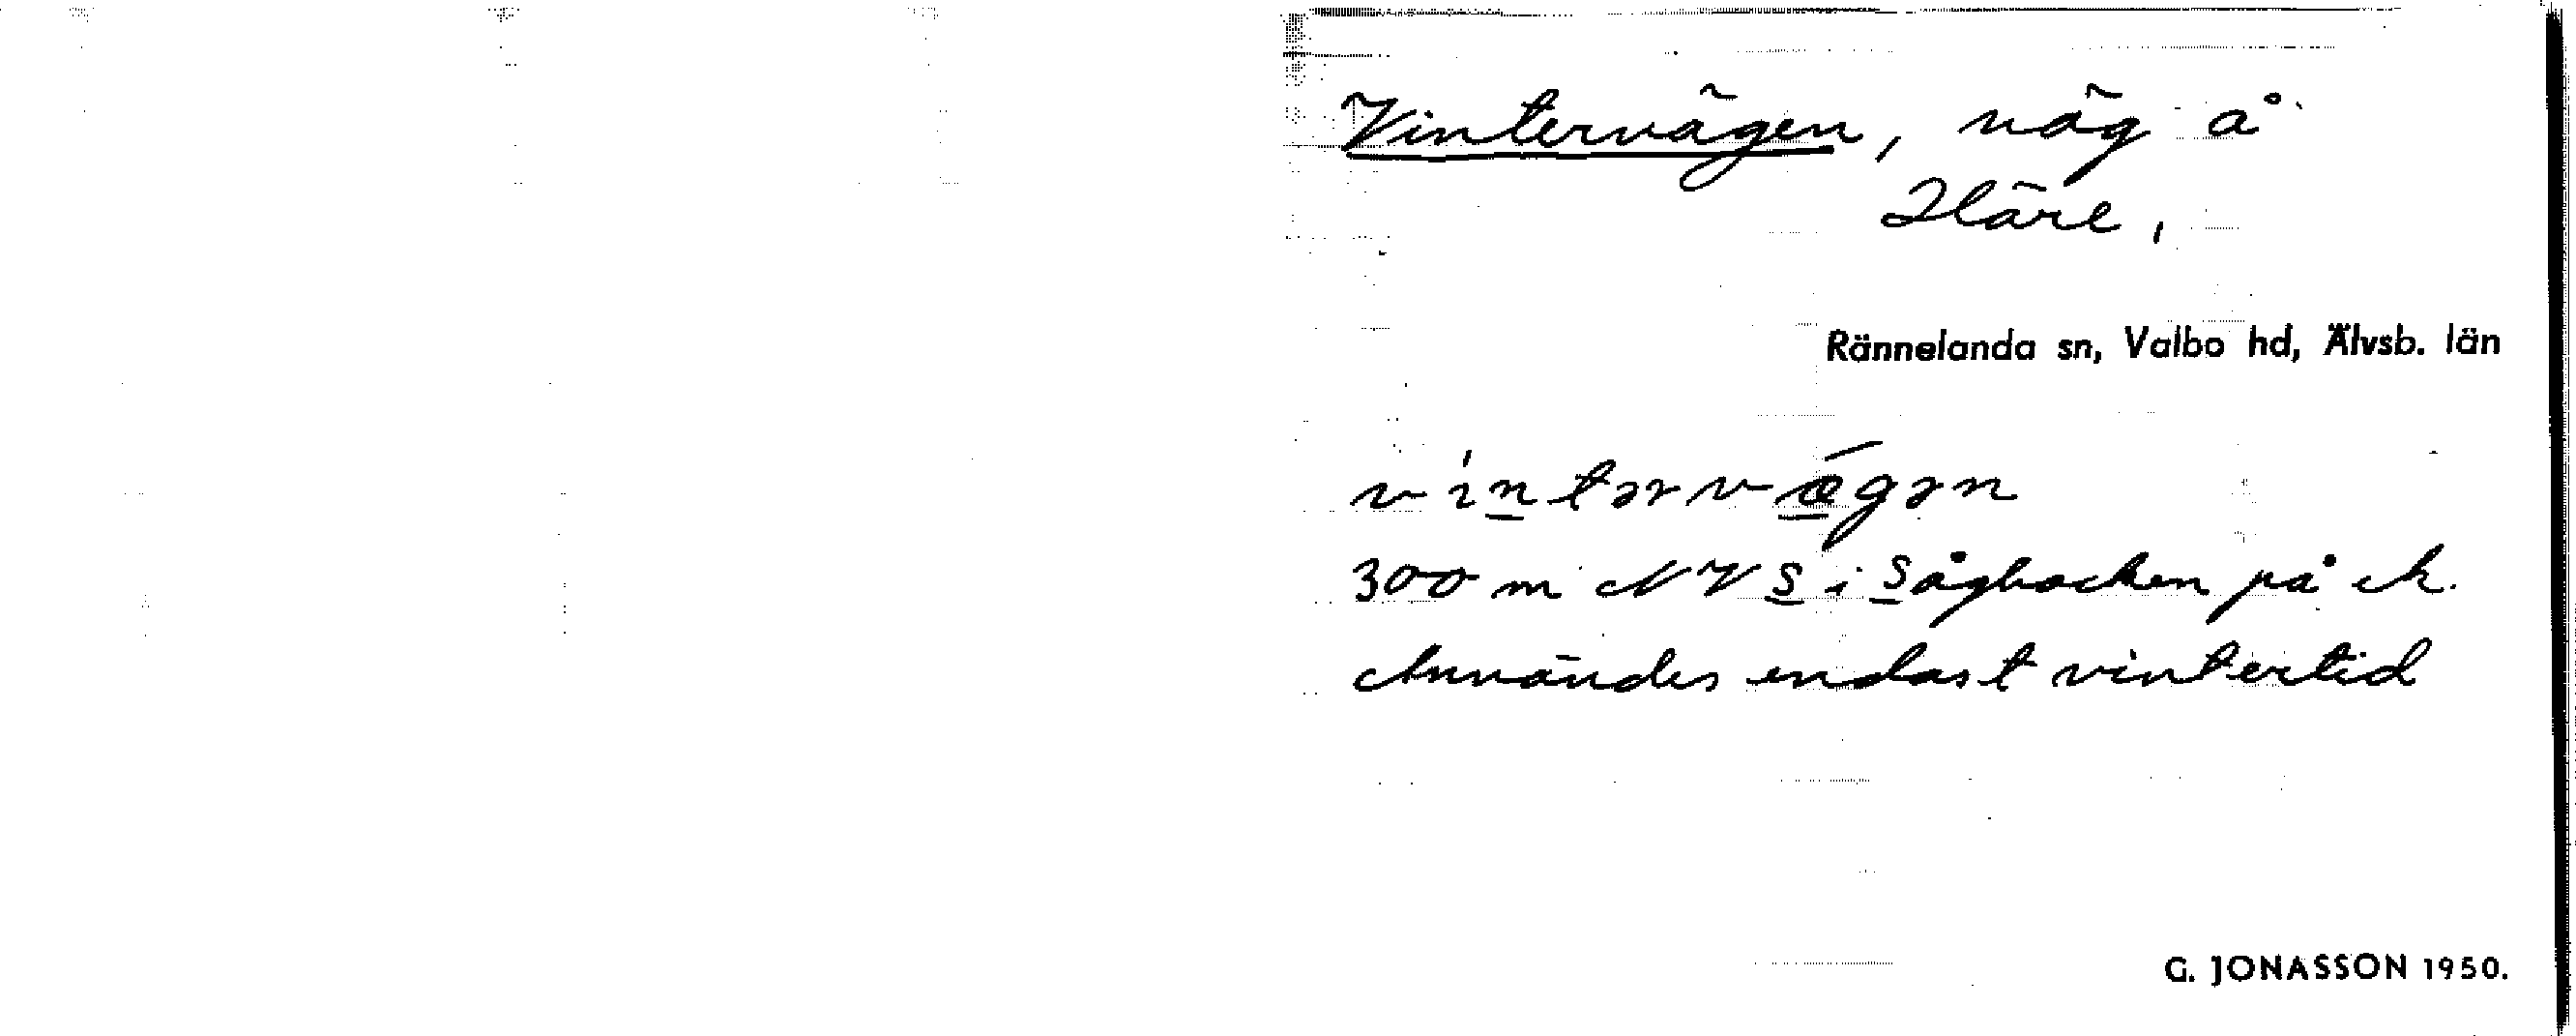 Vintervägen, väg å
Hläre,
Rännelanda sn, Valbo hd, Älvsb. län
vintərvǽgən
300 m NV S i Sågbacken på ek.
Användes endast vintertid
G. JONASSON 1950.